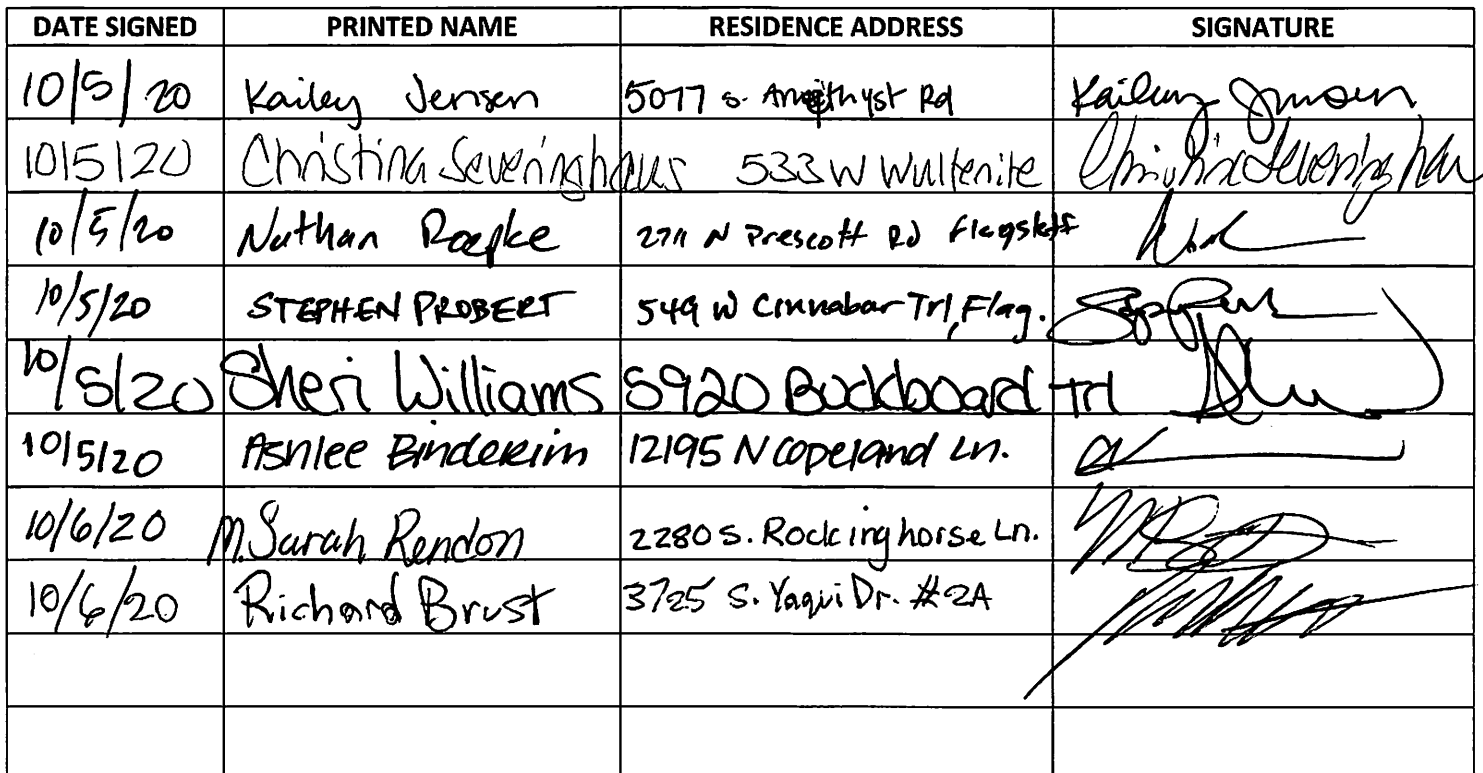 DATE SIGNED PRINTED NAME RESIDENCE ADDRESS SIGNATURE
10/5/20 Kailey Jensen 5077 S. Amethyst Rd Kailey Jensen
10/5/20 Christina Severinghaus 533 W Wulfenite Christina Severinghaus
10/5/20 Nathan Roepke 2711 N Prescott Rd Flagstaff
10/5/20 STEPHEN PROBERT 549 W Cinnabar Trl, Flag.
10/5/20 Sheri Williams 5920 Buckboard Trl
10/5/20 Ashlee Binderim 12195 N Copeland Ln.
10/6/20 M. Sarah Rendon 2280 S. Rocking horse Ln.
10/6/20 Richard Brust 3725 S. Yaqui Dr. #2A